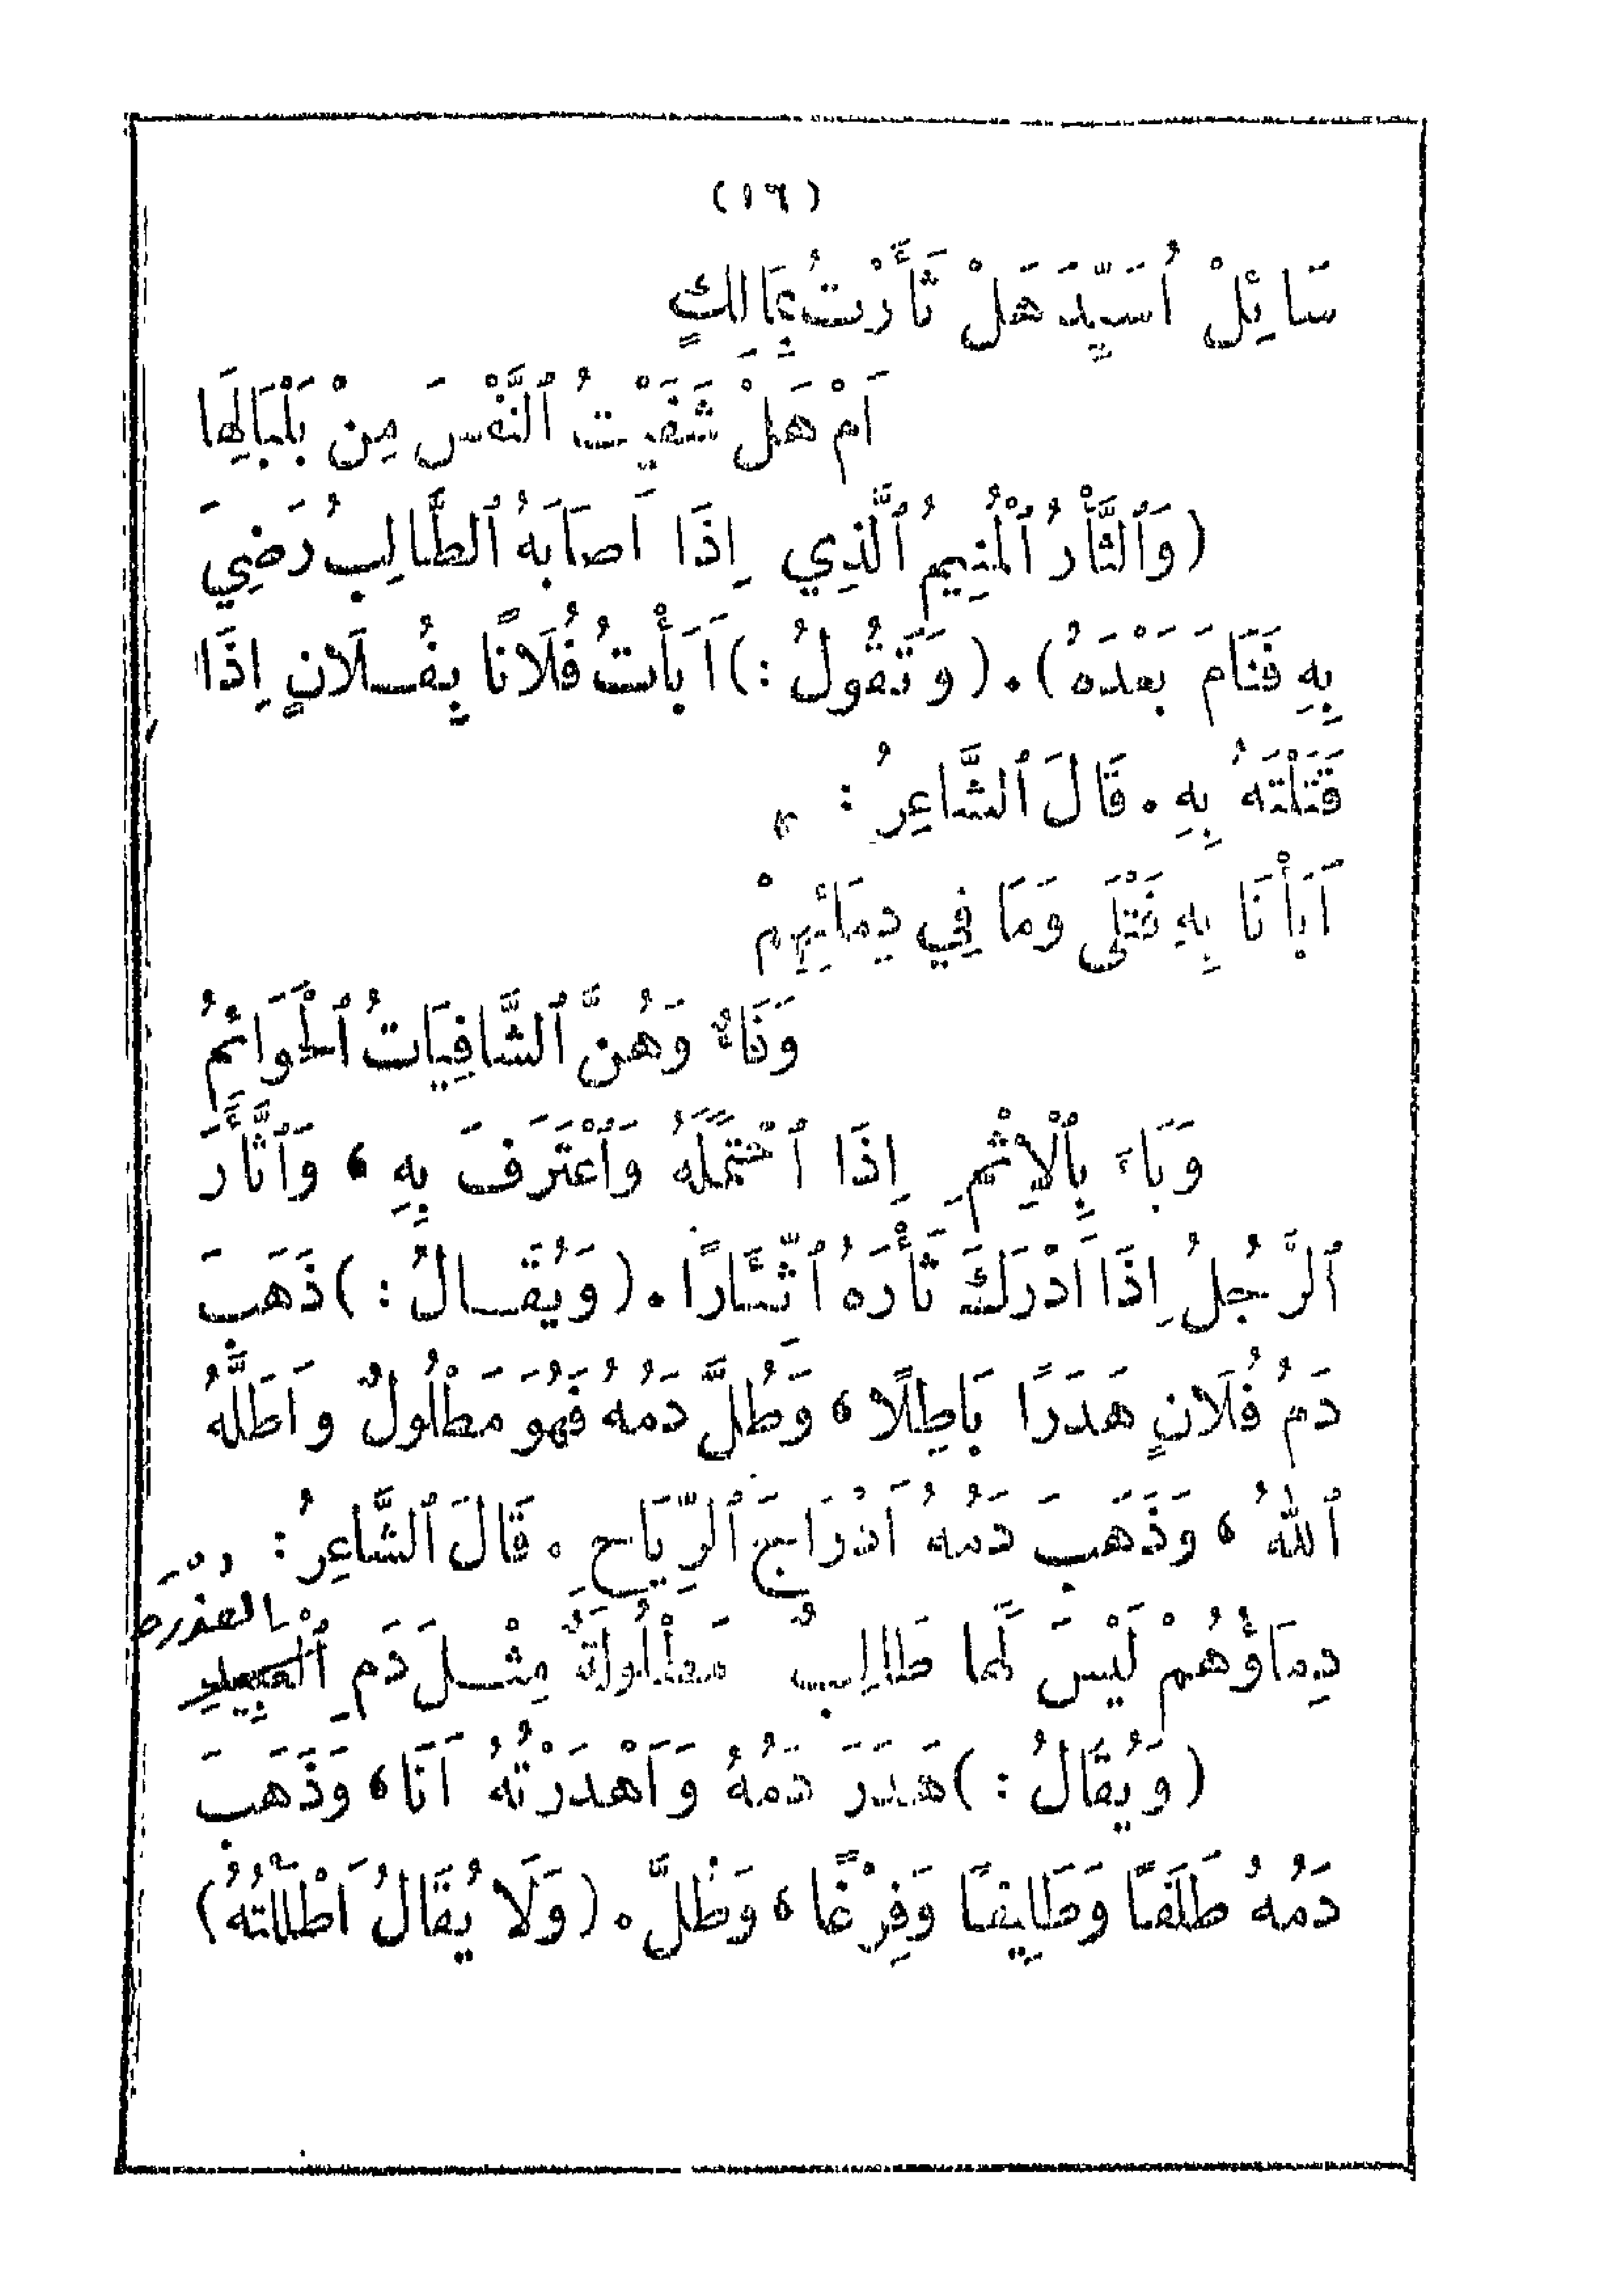 (١٦)
سَائِلْ أُسَيِّدَ هَلْ ثَأَرْتُ بِمَالِكٍ
اَمْ هَلْ شَفَيْتُ ٱلنَّفْسَ مِنْ بَلْبَالِهَا
(وَٱلثَّأْرُ ٱلْمُنِيمُ ٱلَّذِي إِذَا اَصَابَهُ ٱلطَّالِبُ رَضِيَ
بِهِ فَنَامَ بَعْدَهُ). (وَتَقُولُ:) اَبَأْتُ فُلَانًا بِفُلَانٍ إِذَا
قَتَلْتَهُ بِهِ. قَالَ ٱلشَّاعِرُ:
اَبَأْنَا بِهِ قَتْلَى وَمَا فِي دِمَائِهِمْ
وَفَاءٌ وَهُنَّ ٱلشَّافِيَاتُ ٱلْحَوَائِمُ
وَبَاءَ بِٱلْإِثْمِ إِذَا ٱحْتَمَلَهُ وَٱعْتَرَفَ بِهِ، وَٱثَّأَرَ
ٱلرَّجُلُ إِذَا اَدْرَكَ ثَأْرَهُ ٱثِّئَارًا. (وَيُقَالُ:) ذَهَبَ
دَمُ فُلَانٍ هَدَرًا بَاطِلًا، وَطُلَّ دَمُهُ فَهُوَ مَطْلُولٌ وَاَطَلَّهُ
ٱللهُ، وَذَهَبَ دَمُهُ اَدْرَاجَ ٱلرِّيَاحِ. قَالَ ٱلشَّاعِرُ:
العُذْرَة
دِمَاؤُهُمْ لَيْسَ لَهَا طَالِبٌ مَطْلُولَةٌ مِثْلَ دَمِ ٱلْعَبِيدِ
(وَيُقَالُ:) هَدَرَ دَمُهُ وَاَهْدَرْتُهُ اَنَا، وَذَهَبَ
دَمُهُ طَلَفًا وَطَلِيفًا وَفِرْغًا، وَظُلَّ. (وَلَا يُقَالُ اَطْلَلْتُهُ)